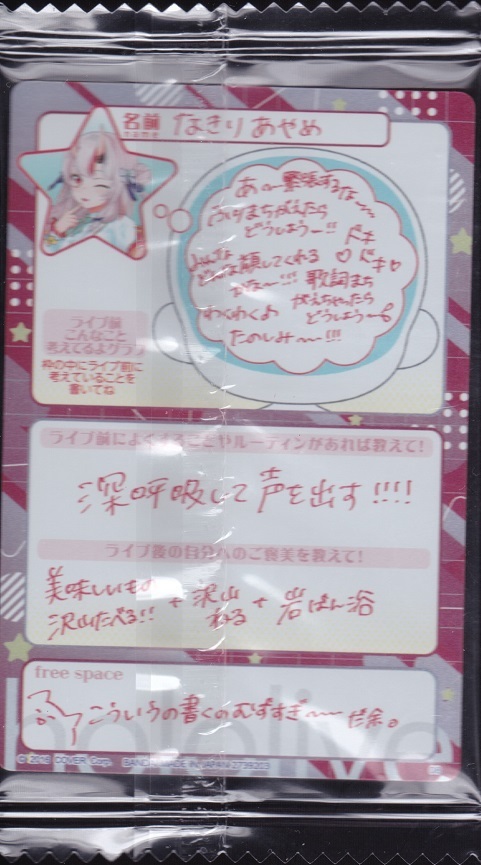 名前 なきり あやめ
name
あ〜緊張するな〜〜
まちがえたら
どうしよう〜!!
ドキ
♡ドキ♡
みんな
どんな顔してくれる
かな〜!!!
歌詞まち
がえちゃったら
どうしよう〜
わくわくよ
たのしみ〜!!!
ライブ前
こんなこと
考えてるよグラフ
枠の中にライブ前に
考えていることを
書いてね
ライブ前によくすることやルーティンがあれば教えて!
深呼吸して声を出す!!!!
ライブ後の自分へのご褒美を教えて!
美味しいもの
沢山たべる!! + 沢山
ねる + 岩ばん浴
free space
こういうの書くのむずすぎ〜〜だ余。
hololive
© 2016 COVER Corp. BANDAI MADE IN JAPAN 2739203